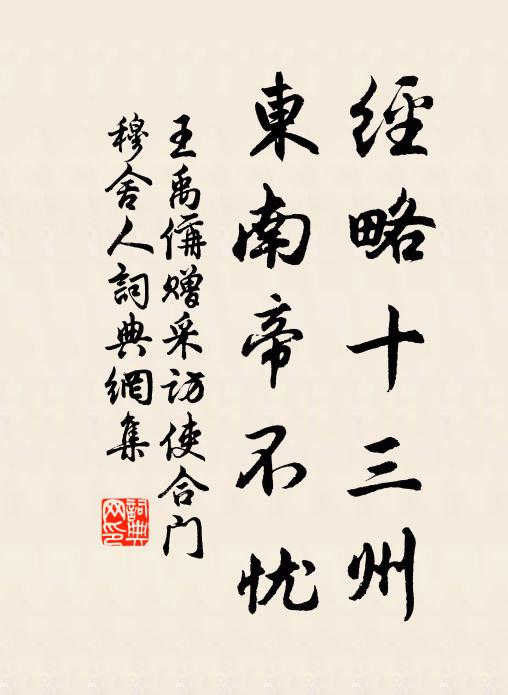 經略十三州
東南帝不忧
王禹偁赠采访使合门
穆舍人詞典網集
詞典
网印